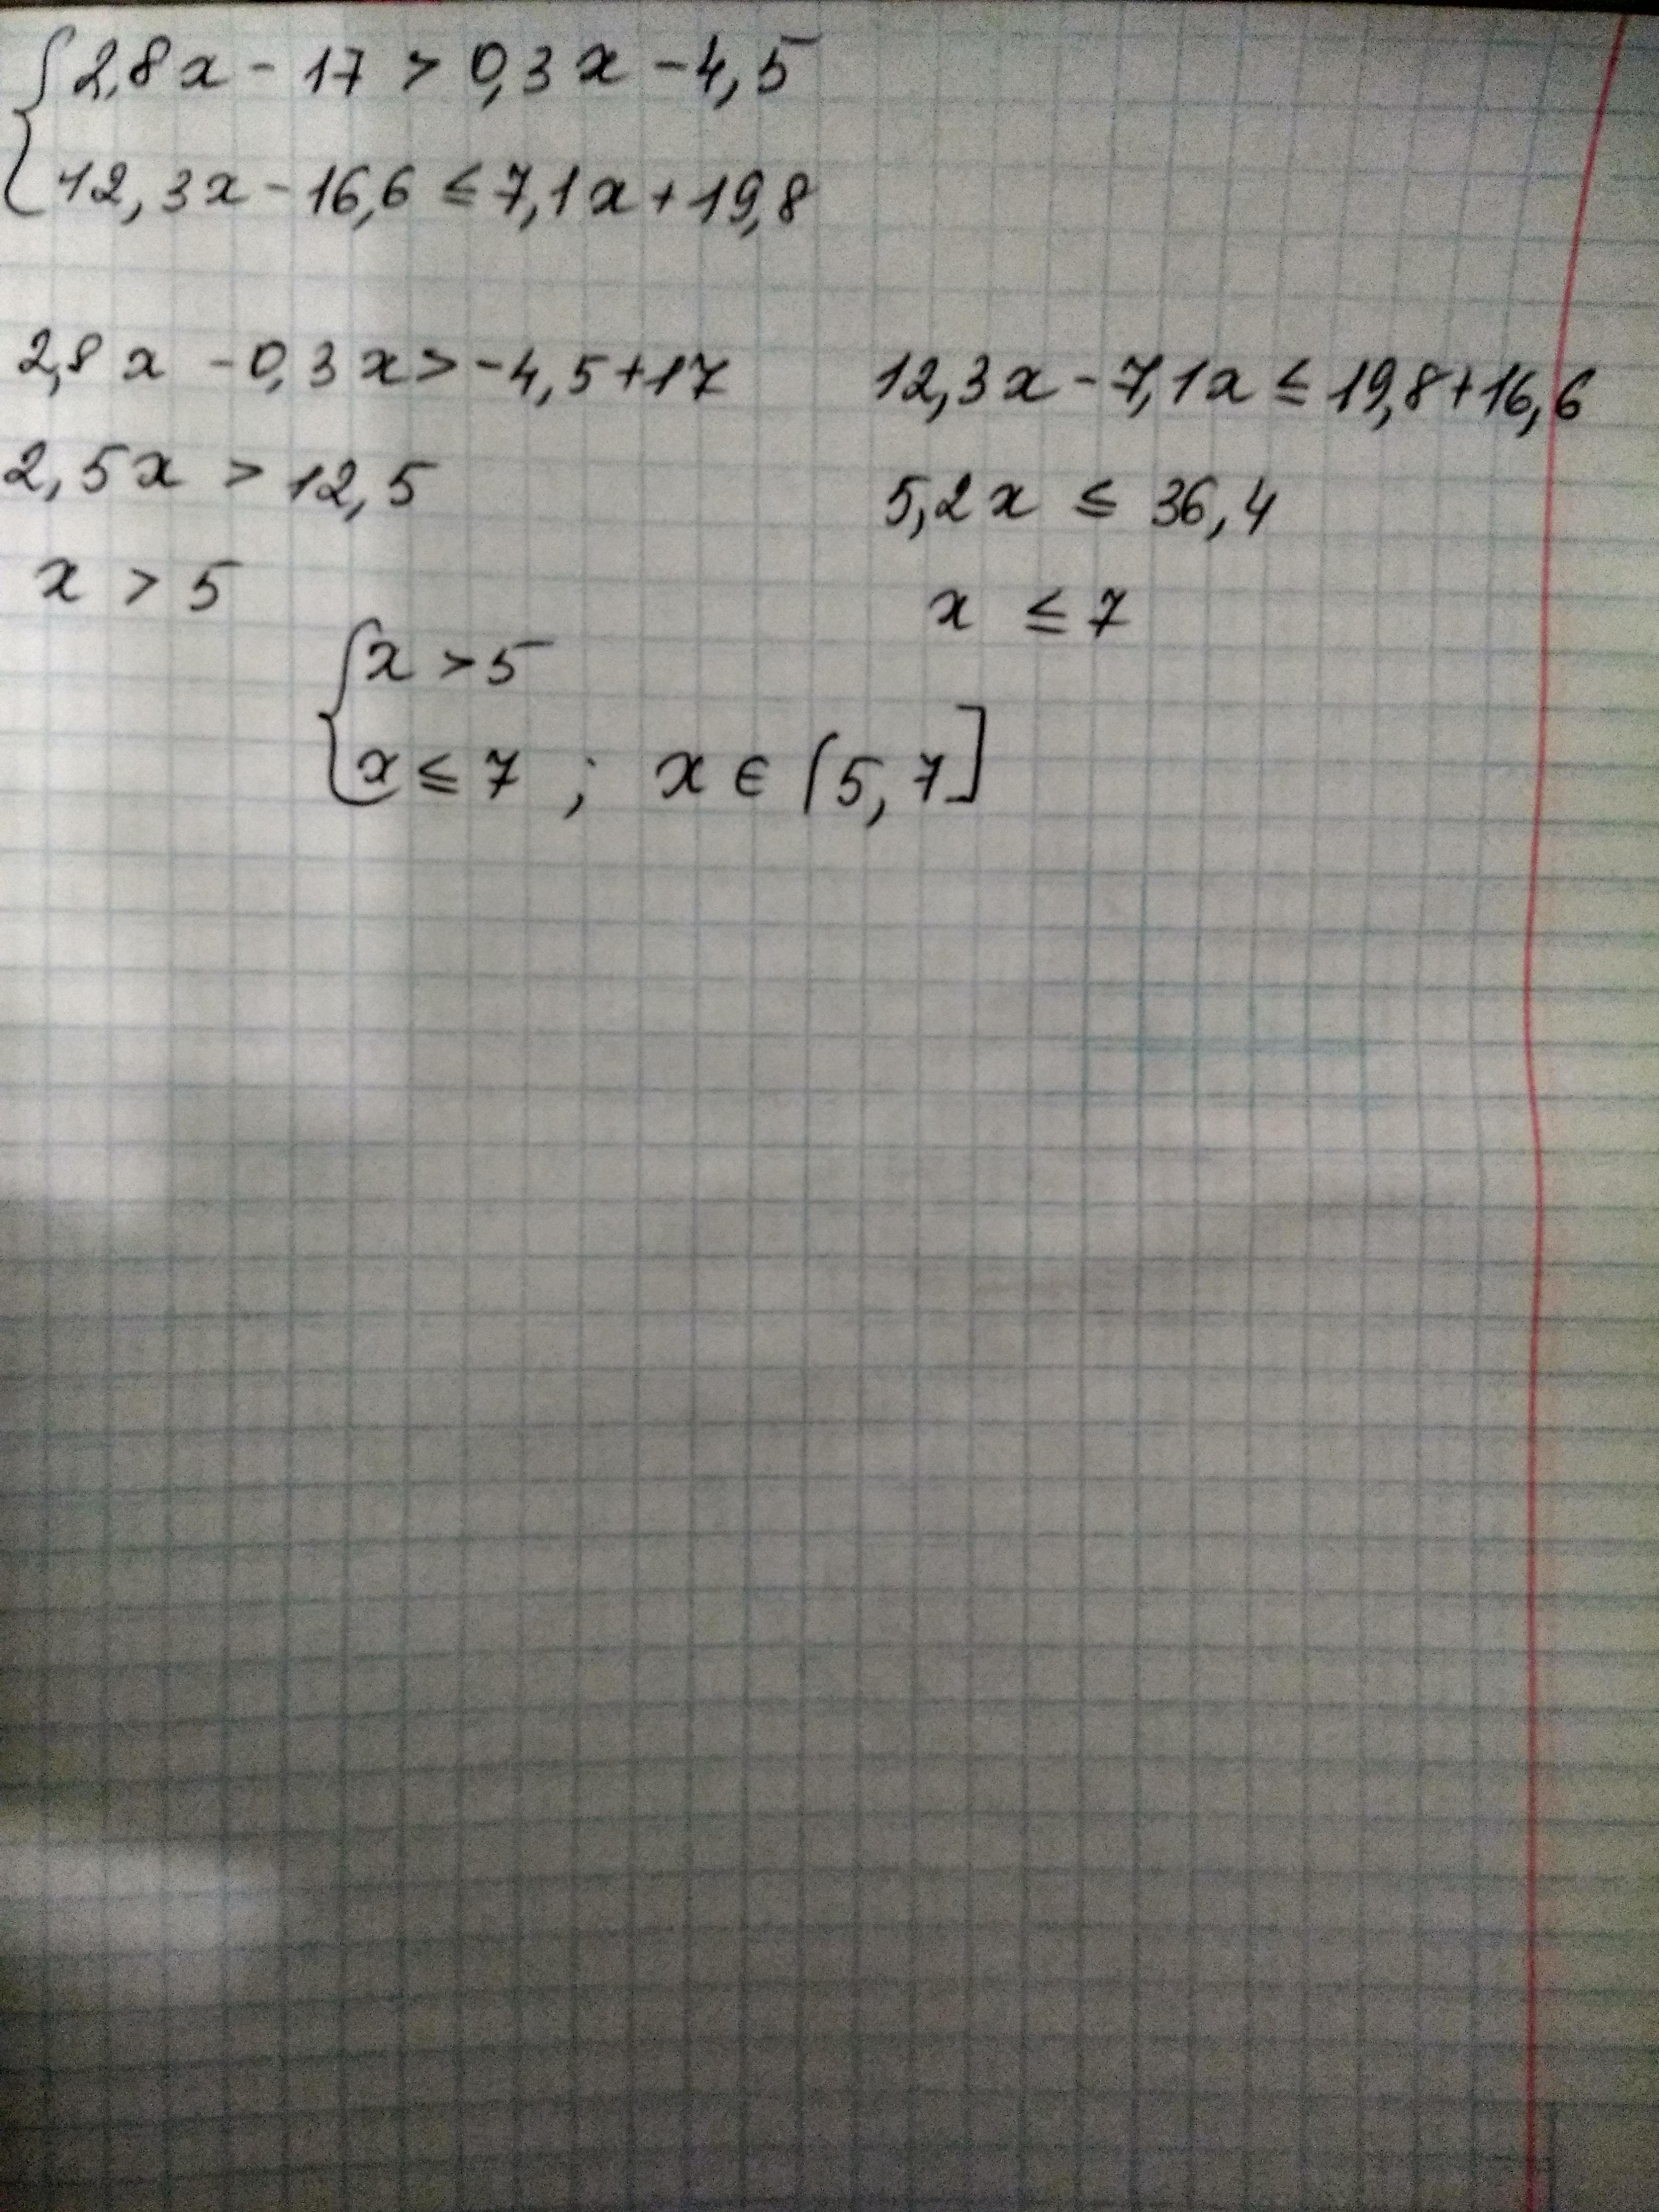 {2,8x - 17 > 0,3x - 4,5
{12,3x - 16,6 ≤ 7,1x + 19,8
2,8x - 0,3x > -4,5 + 17
2,5x > 12,5
x > 5
12,3x - 7,1x ≤ 19,8 + 16,6
5,2x ≤ 36,4
x ≤ 7
{x > 5
{x ≤ 7 ; x ∈ (5, 7]